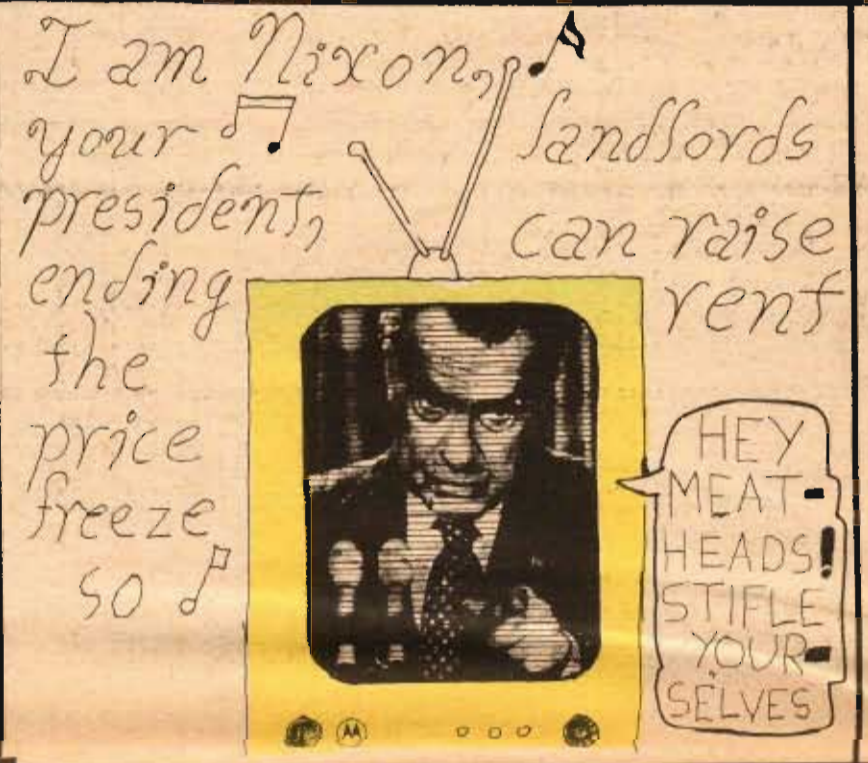 I am Nixon,
your
president,
ending
the
price
freeze
so
landlords
can raise
rent
HEY
MEAT-
HEADS!
STIFLE
YOUR-
SELVES